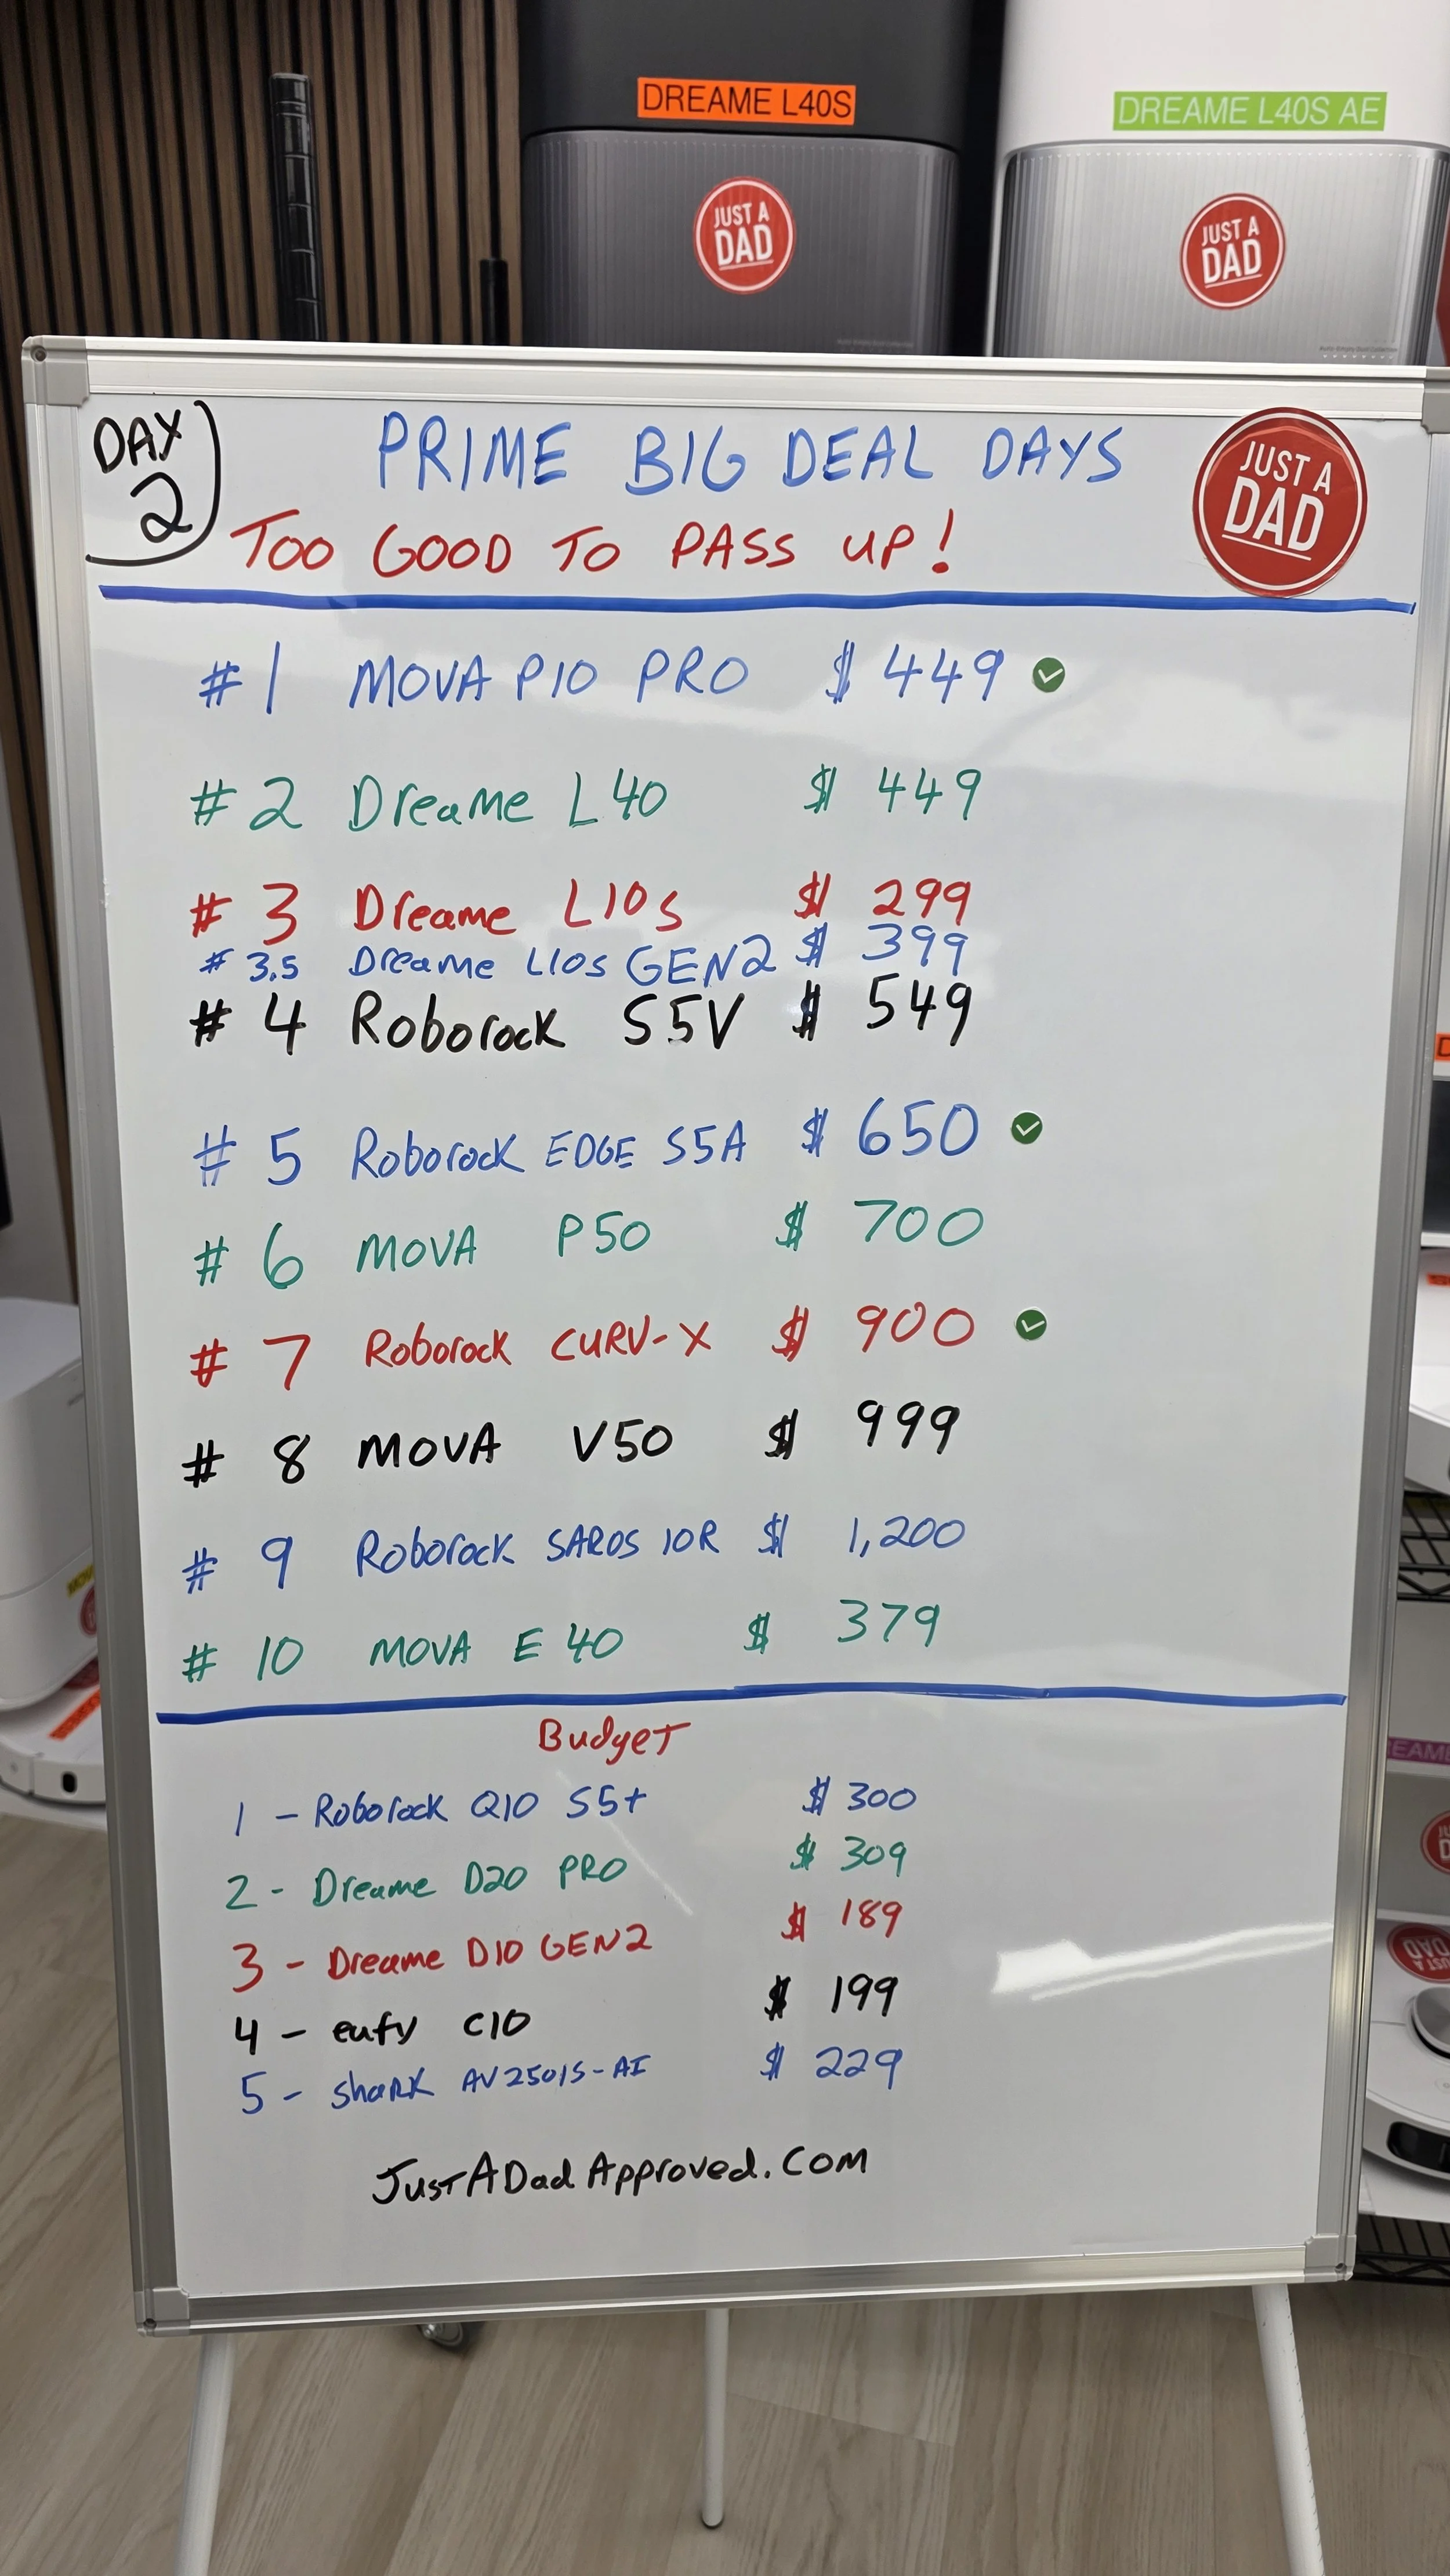 DREAME L40S
DREAME L40S AE
JUST A
DAD
JUST A
DAD
DAY
2
PRIME BIG DEAL DAYS
TOO GOOD TO PASS UP!
JUST A
DAD
#1 MOVA P10 PRO $449
#2 Dreame L40 $449
#3 Dreame L10s $299
#3.5 Dreame L10s GEN2 $399
#4 Roborock S5V $549
#5 Roborock EDGE S5A $650
#6 MOVA P50 $700
#7 Roborock CURV-X $900
#8 MOVA V50 $999
#9 Roborock SAROS 10R $1,200
#10 MOVA E40 $379
Budget
1 - Roborock Q10 S5+ $300
2 - Dreame D20 PRO $309
3 - Dreame D10 GEN2 $189
4 - eufy C10 $199
5 - shark AV2501S-AI $229
JustADadApproved.com